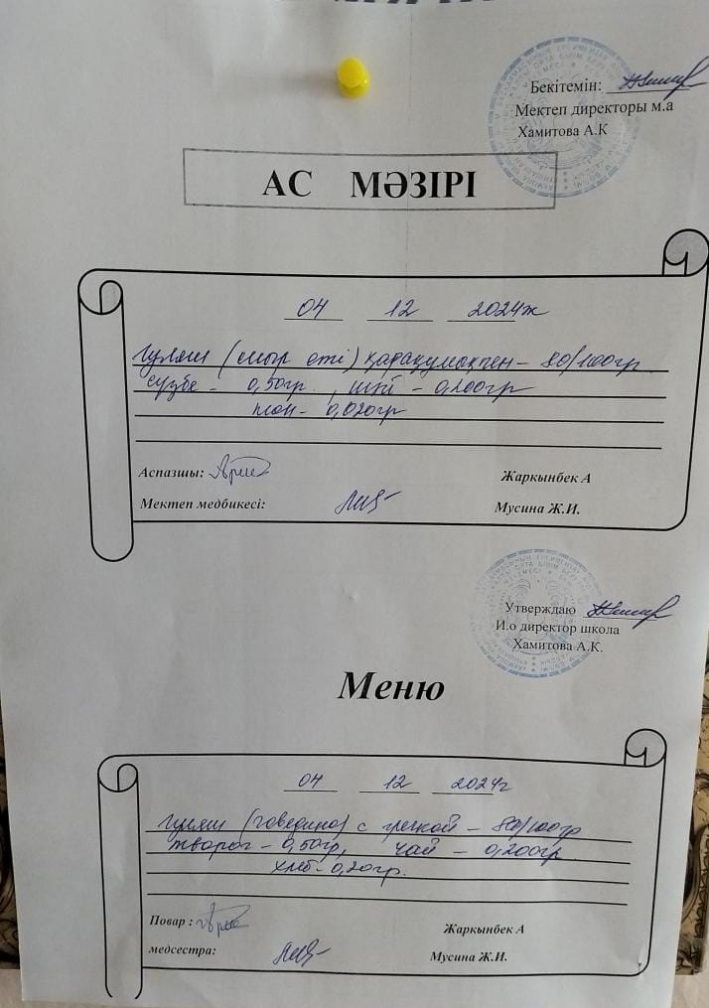 Бекітемін:
Мектеп директоры м.а
Хамитова А.К
АС МӘЗІРІ
04 12 2024ж
Гуляш (сиыр еті) қарақұмықпен - 80/100гр
сүзбе - 0,50гр, шай - 0,200гр
нан - 0,020гр
Аспазшы: Жаркынбек А
Мектеп медбикесі: Мусина Ж.И.
Утверждаю
И.о директор школа
Хамитова А.К.
Меню
04 12 2024г
Гуляш (говедина) с гречкой - 80/100гр
творог - 0,50гр, чай - 0,200гр
хлеб - 0,20гр.
Повар : Жаркынбек А
медсестра: Мусина Ж.И.